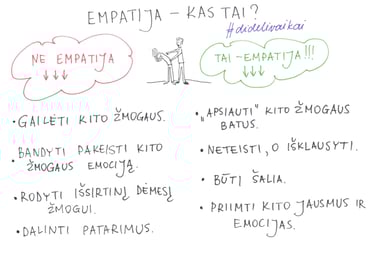 EMPATIJA – KAS TAI?
#didelivaikai
NE EMPATIJA
TAI – EMPATIJA!!!
• GAILĖTI KITO ŽMOGAUS.
• BANDYTI PAKEISTI KITO
ŽMOGAUS EMOCIJĄ.
• RODYTI IŠSIRTINĮ DĖMESĮ
ŽMOGUI.
• DALINTI PATARIMUS.
• „APSIAUTI" KITO ŽMOGAUS
BATUS.
• NETEISTI, O IŠKLAUSYTI.
• BŪTI ŠALIA.
• PRIIMTI KITO JAUSMUS IR
EMOCIJAS.